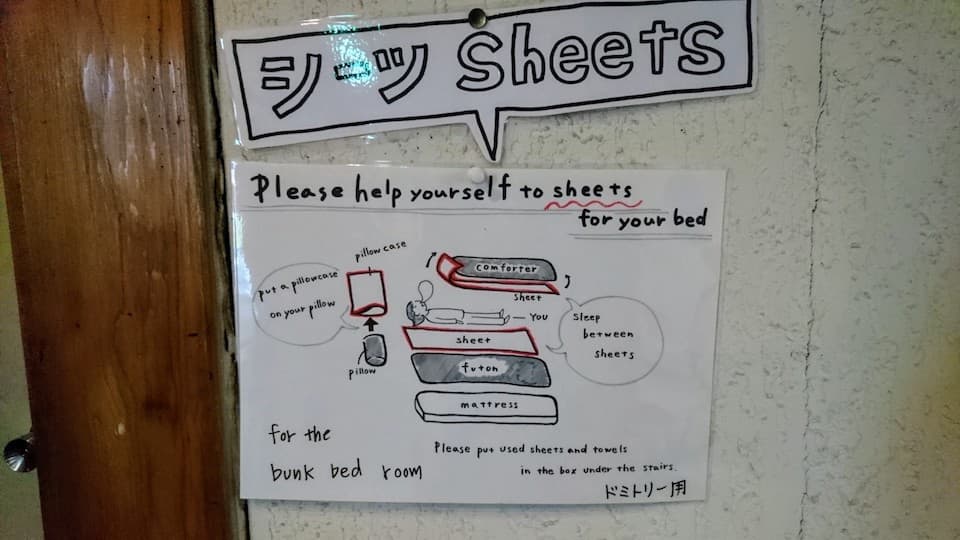 シーツ sheets
Please help yourself to sheets
for your bed
pillow case
put a pillowcase
on your pillow
pillow
comforter
sheet
YOU
sheet
futon
mattress
Sleep
between
sheets
for the
bunk bed room
Please put used sheets and towels
in the box under the stairs.
ドミトリー用